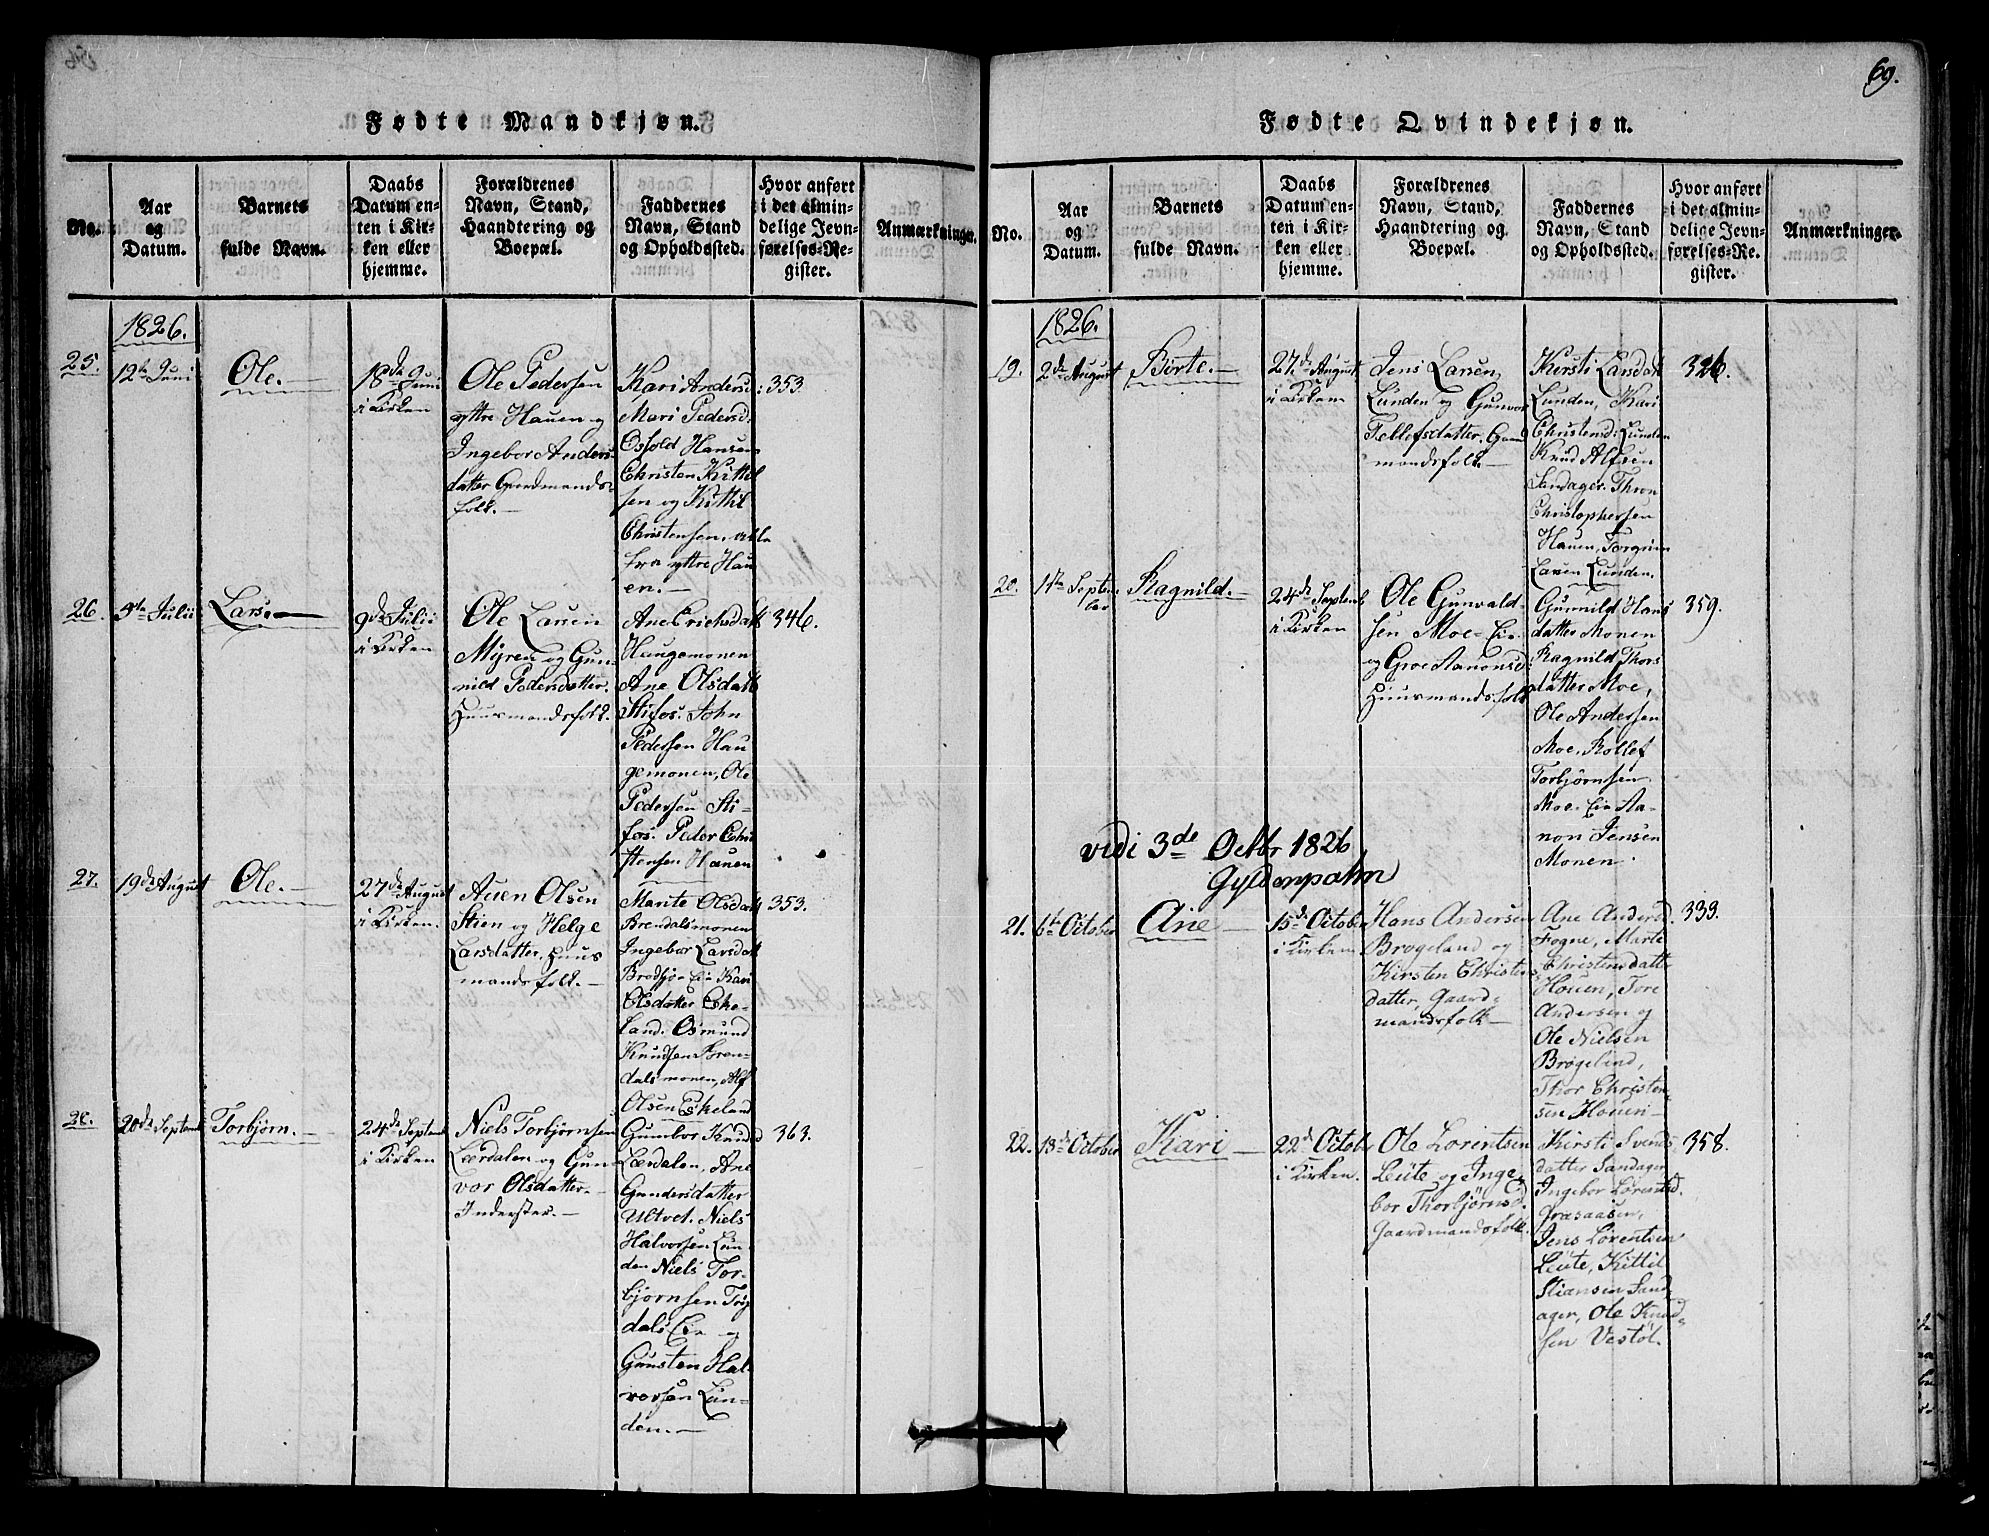 Fødte Mandkjøn.
No.
Aar
og
Datum.
Barnets
fulde Navn.
Daabs
Datum en-
ten i Kir-
ken eller
hjemme.
Forældrenes
Navn, Stand,
Haandtering og
Boepæl.
Faddernes
Navn, Stand
og Opholdssted.
Hvor anført
i det almin-
delige Jevn-
førelses-Re-
gister.
Anmærkninger.
1826.
25.
12te Juni
Ole.
18de Juni
i Kirken
Ole Pedersen
yttre Hauen og
Ingebor Anders
datter Gaardmands-
folk.
Kari Andersd:
Mari Pedersd:
Osfold Hansen
Christen Kittil
sen og Kittil
Christensen, alle
fra yttre Hau
en.
353.
26.
Julii
Lars.
9de Julii
i Kirken
Ole Larsen
Myren og Gun-
nild Pedersdatter.
Huusmandsfolk.
Ane Erichsdatt
Haugemonen
Ane Olsdatt
Stifos. John
Pedersen Hau
gemonen, Ole
Pedersen Sti-
fos. Peder Chri
stensen Hauen
346.
27.
19de August
Ole.
27de August
i Kirken.
Auen Olsen
Stien og Helge
Larsdatter, Huus
mandsfolk.
Marite Olsdatt
Brendalsmonen
Ingebor Larsdatt
Eie Kari
Olsdatter Eske-
land. Osmund
Knudsen Bren-
dalsmonen, Alf
Olsen Eskeland
353.
28.
20de Septemb
Torbjørn.
24de Septemb
i Kirken
Niels Torbjørnsen
Lærdalen og Gun-
vor Olsdatter.
Inderster.
Gumbor Knudsd
Lærdalen, Ane
Gundersdatter
Ultvet. Niels
Halvorsen Lun-
den Niels Tor-
bjørnsen Trøg
dals Eie og
Gunsten Hal-
vorsen Lun-
den.
363.
69.
Fødte Qvindekjøn.
No.
Aar
og
Datum.
Barnets
fulde Navn.
Daabs
Datum en-
ten i Kir-
ken eller
hjemme.
Forældrenes
Navn, Stand,
Haandtering og
Boepæl.
Faddernes
Navn, Stand
og Opholdssted.
Hvor anført
i det almin-
delige Jevn-
førelses-Re-
gister.
Anmærkninger.
1826.
19.
2de August
Birte.
27de August
i Kirken
Jens Larsen,
Lunden og Gunvor
Tellefsdatter. Gaard
mandsfolk.
Kirsti Larsdatt
Lunden, Kari
Christensd: Lunden
Knud Alfsen
Sandager. Thron
Christophersen
Hauen, Torgrim
Larsen Lunden.
326.
20.
1ste Septem
ber
Ragnild.
24de Septemb
i Kirken
Ole Gunvald-
sen Moe-Eie
og Groe Aanonsd:
Huusmandsfolk
Gunnild Hans
datter Monen
Ragnild Thors
datter Moe,
Ole Andersen
Moe, Rollef
Torbjørnsen
Moe-Eie Aa-
non Jensen
Monen.
359.
vidi 3de Octbr 1826
Gyldenpalm
21.
6te October
Ane
15de October
i Kirken
Hans Andersen
Brøgeland og
Kirsten Christens
datter, Gaard-
mandsfolk
Ane Andersd.
Fogne, Marte
Christensdatter
Houen, Tore
Andersen og
Ole Nielsen
Brøgelind,
Thor Christen-
sen Houen
333.
22.
13de October
Kari
22de October
i Kirken.
Ole Lorentsen
Leüte og Inge-
bor Thorbjørnsd.
Gaardmandsfolk.
Kirsti Svends
datter Sandager
Ingebor Lorentsd.
Græsaasen,
Jens Lørentsen
Leüte, Kittil
Stiansen Sand-
ager, Ole Knud-
sen Vestøl.
358.